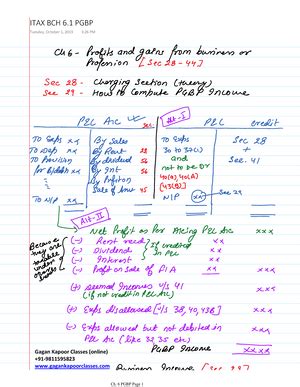 ITAX BCH 6.1 PGBP
Tuesday, October 1, 2019 3:26 PM
Ch 6 - Profits and gains from business or
Profession [Sec 28-44]
Sec 28 - Charging Section (theory)
Sec 29 - How to Compute PGBP Income
P&L A/C Sec Alt-I P&L Credit
To Exps xx By Sales To Exps Sec 28
To Dep xx By Rent 22 30 to 37(1) +
To Provision By dividend 56 and Sec. 41
for B/debts xx By Int 56 not to be Dr
By Profit on 40(a), 40(A)
Sale of Invt 45 [43(B)]
To N/P xx N/P xx Sec 29
Alt-II
Net Profit as Per A/cing P&L A/c xxx
Because they are taxable under other heads
(-) Rent recd. xx
(-) Dividend xx
(-) Interest xx
(-) Profit on Sale of F/A xx xx
If credited in P&L
(+) Deemed Incomes u/s 41 xx
(if not credit in P&L A/c)
(+) Exps disallowed [u/s 38, 40, 43B] xx
(-) Exps allowed but not debited in
P&L A/c (like 32, 35 etc) xx
PGBP Income xxx
Gagan Kapoor Classes (online)
+91-9811595823
www.gagankapoorclasses.com
Business Income
Ch 6 PGBP Page 1